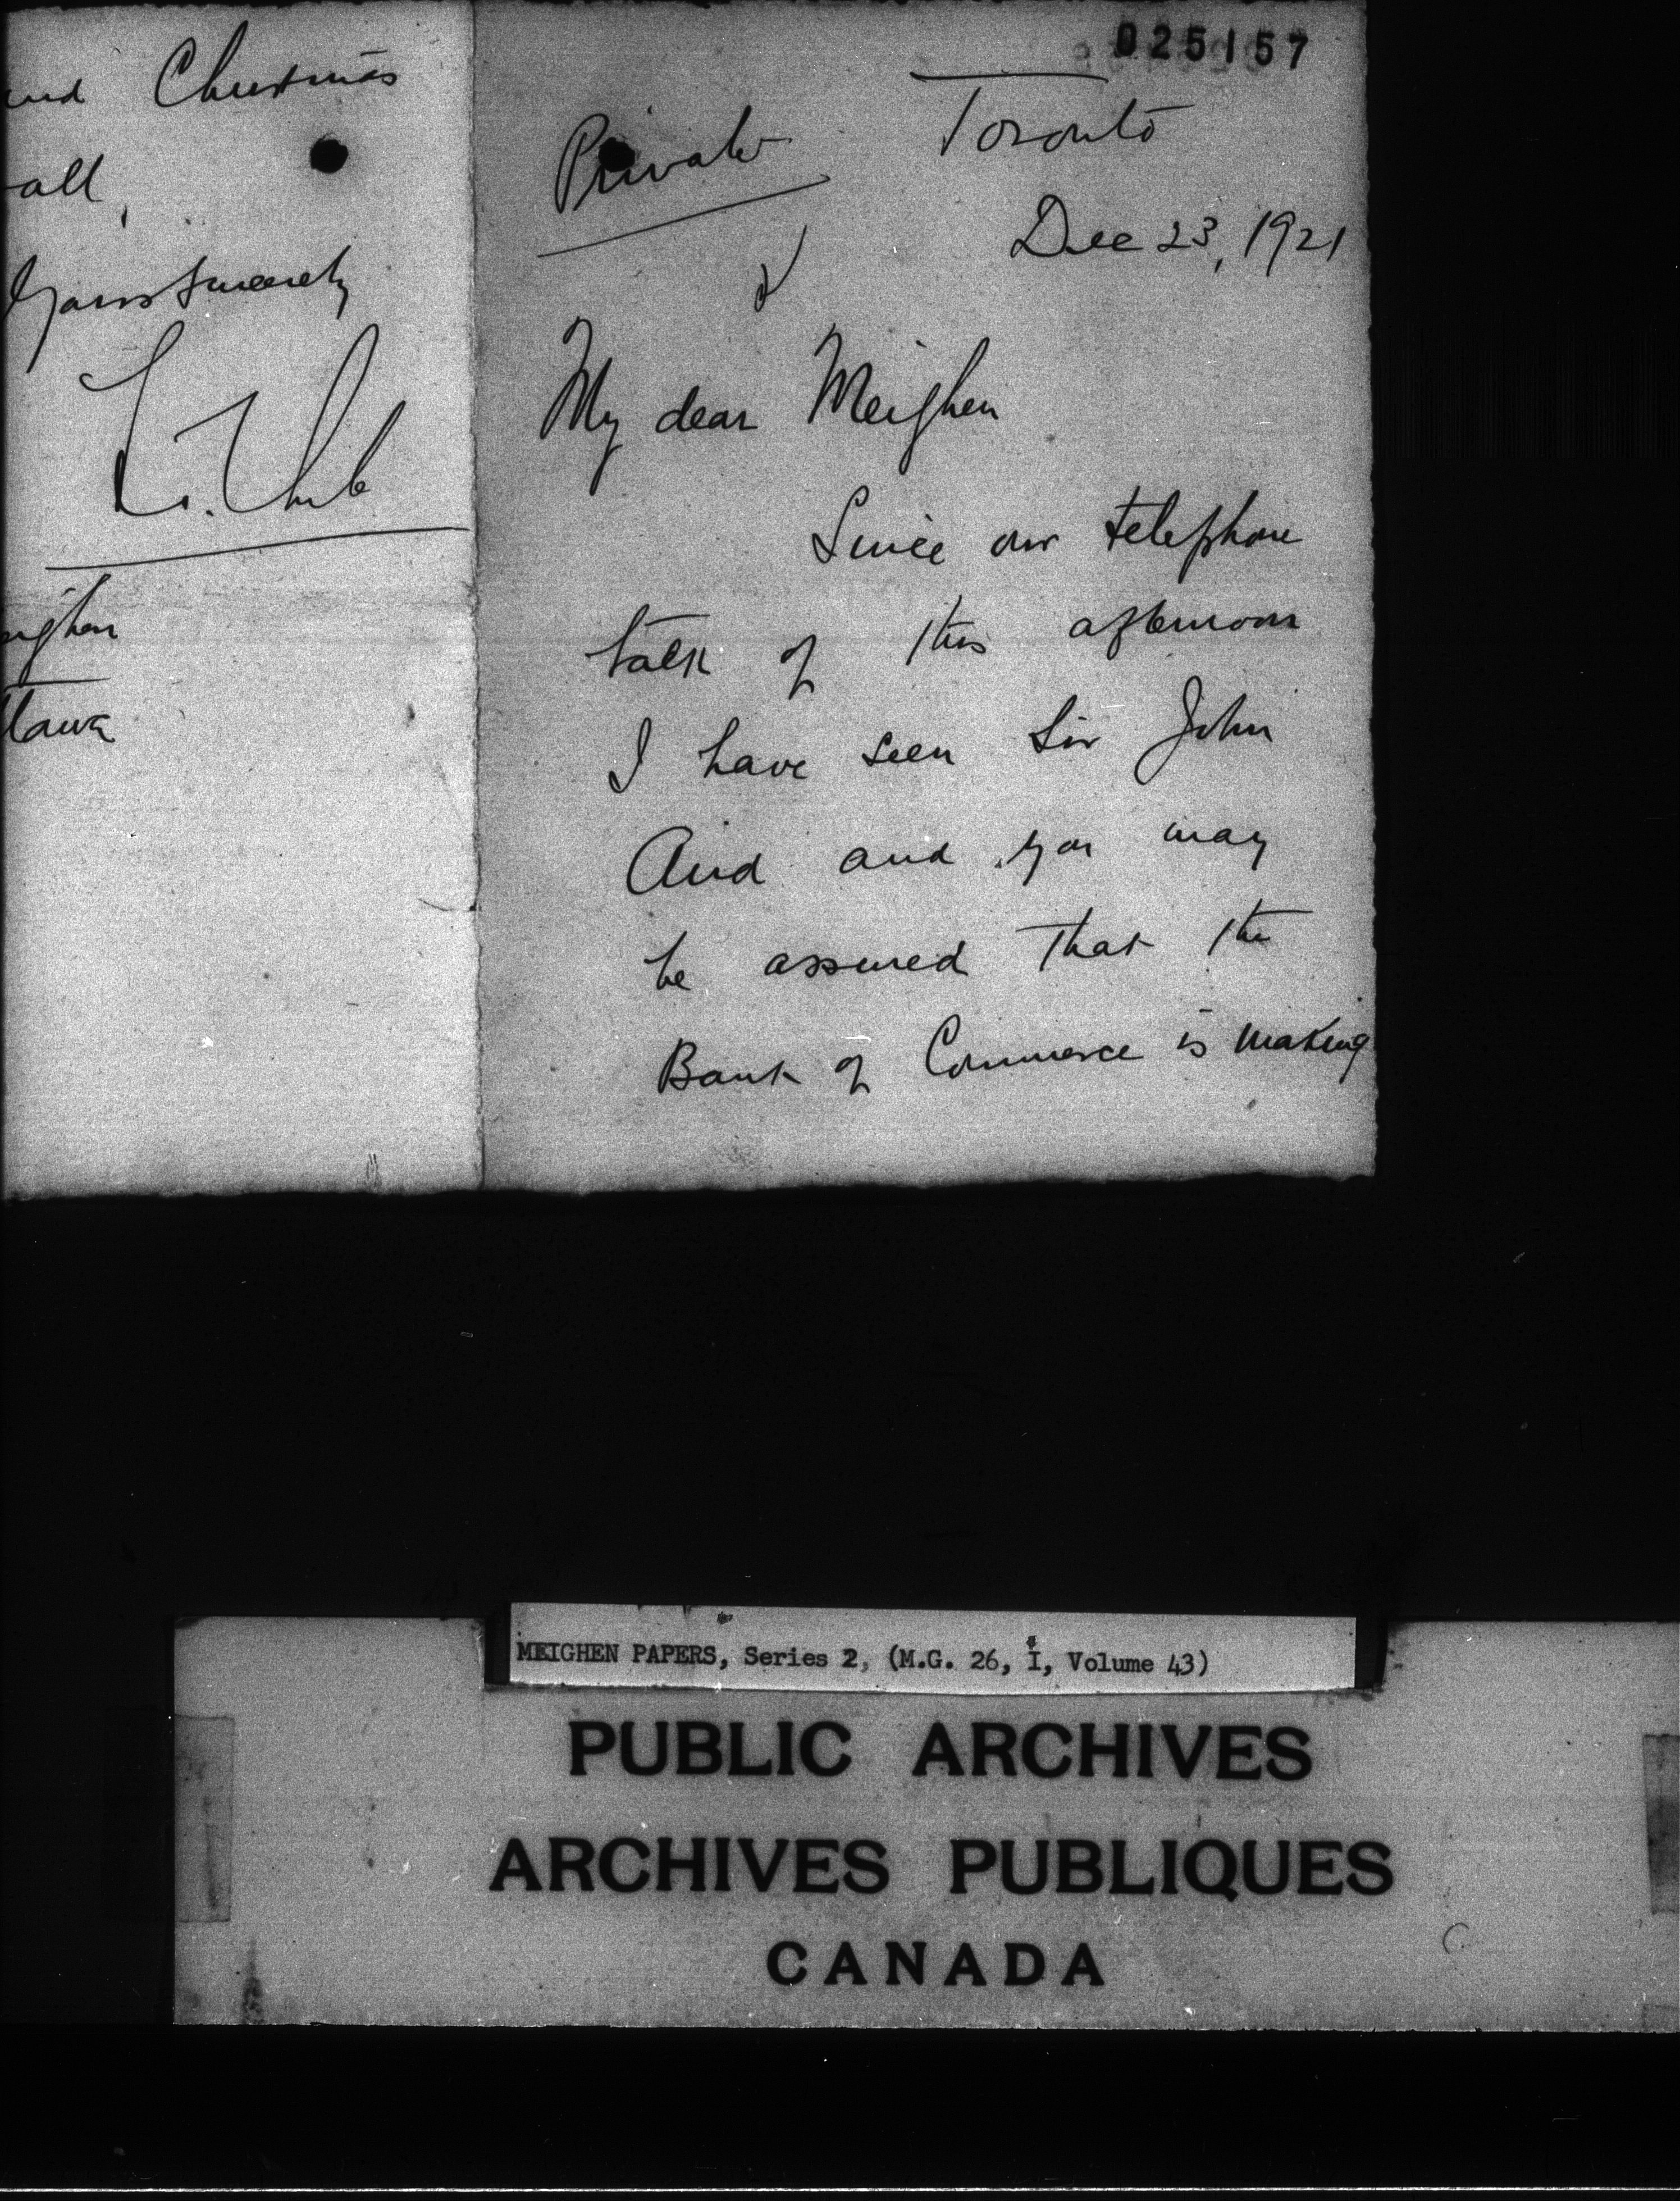 and Christmas
all,
Yours sincerely
025157
Private
Toronto
Dec 23, 1921
My dear Meighen
Since our telephone
talk of this afternoon
I have seen Sir John
Aird and you may
be assured that the
Bank of Commerce is making
MEIGHEN PAPERS, Series 2, (M.G. 26, I, Volume 43)
PUBLIC ARCHIVES
ARCHIVES PUBLIQUES
CANADA